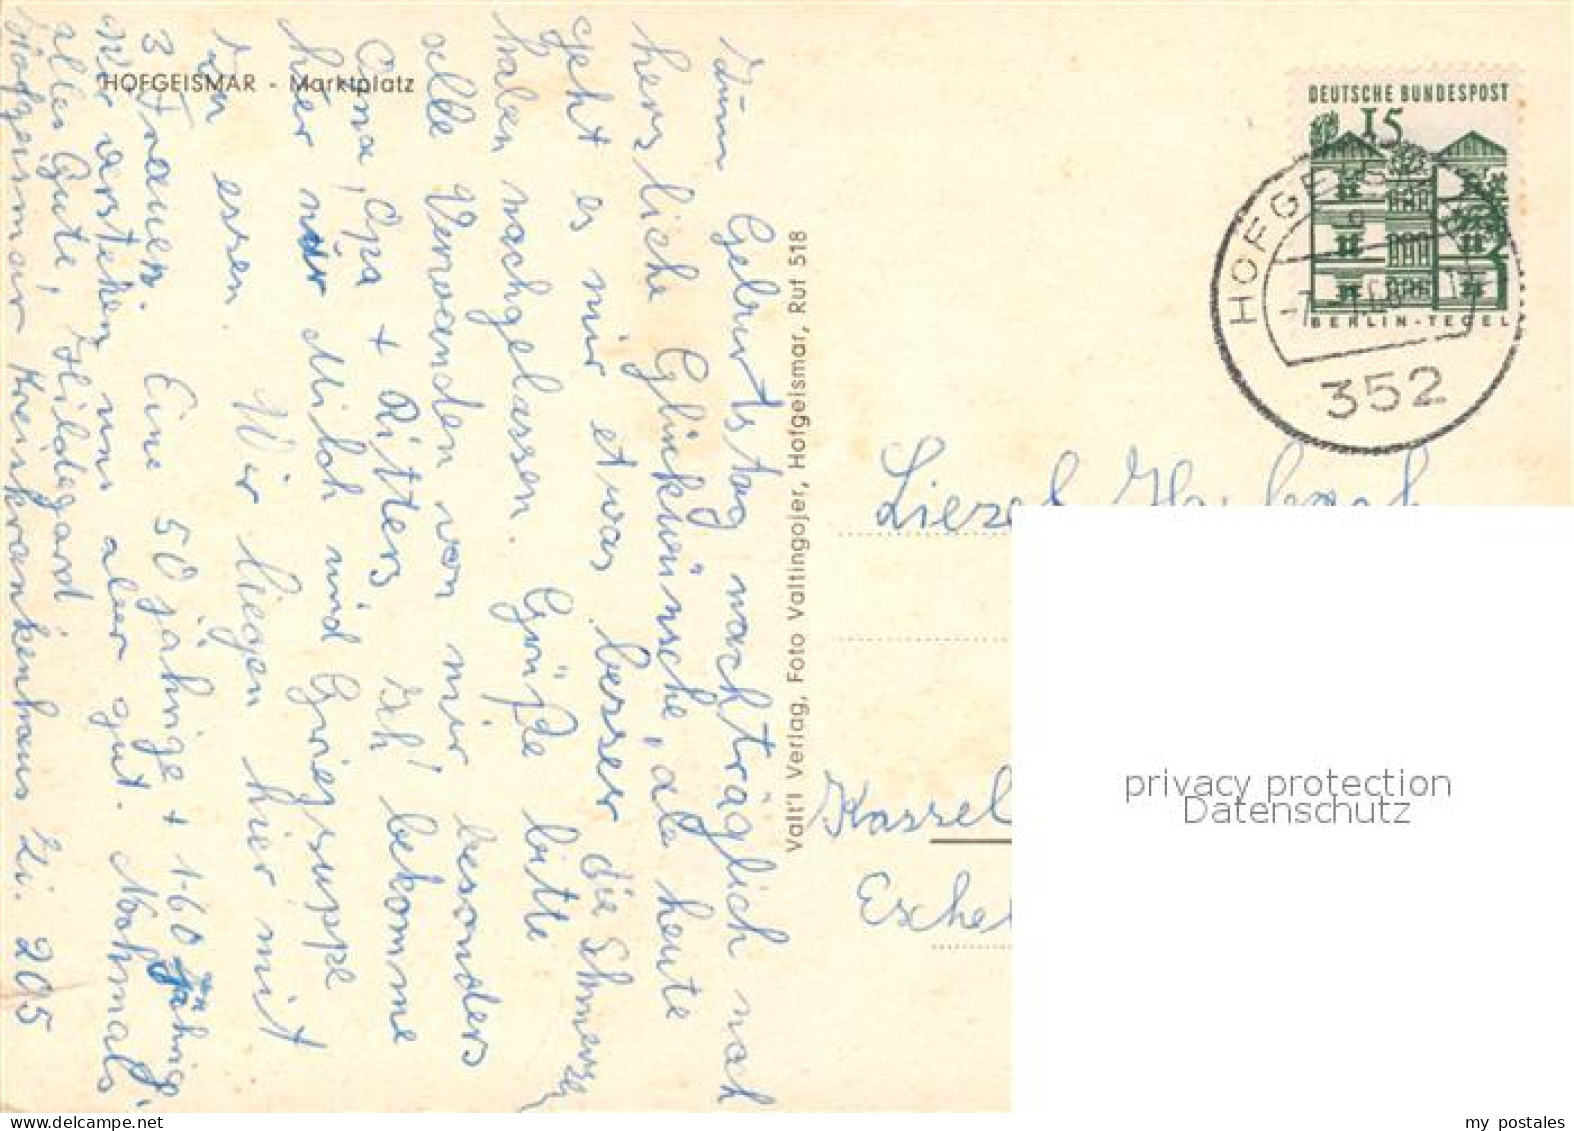 HOFGEISMAR - Marktplatz
Zum Geburtstag nachträglich noch
herzliche Glückwünsche, da heute
geht es mir etwas besser die Schmerzen
haben nachgelassen. Grüße bitte
alle Verwanden von mir besonders
Oma, Opa + Ritters, Ich bekomme
hier nur Milch und Griessuppe
zon essen. Wir liegen hier mit
3 Frauen. Eine 50 jährige + 1-60 jährig.
wir verstehen uns aber gut. Nochmals
alles Gute, Hildegard
Hofgeismar Kreiskrankenhaus Zi. 205
Valt'l Verlag, Foto Valtingojer, Hofgeismar, Ruf 518
DEUTSCHE BUNDESPOST
15
BERLIN-TEGEL
HOFGEISMAR
352
Liesel
Kassel
Esche
privacy protection
Datenschutz
www.delcampe.net
my postales